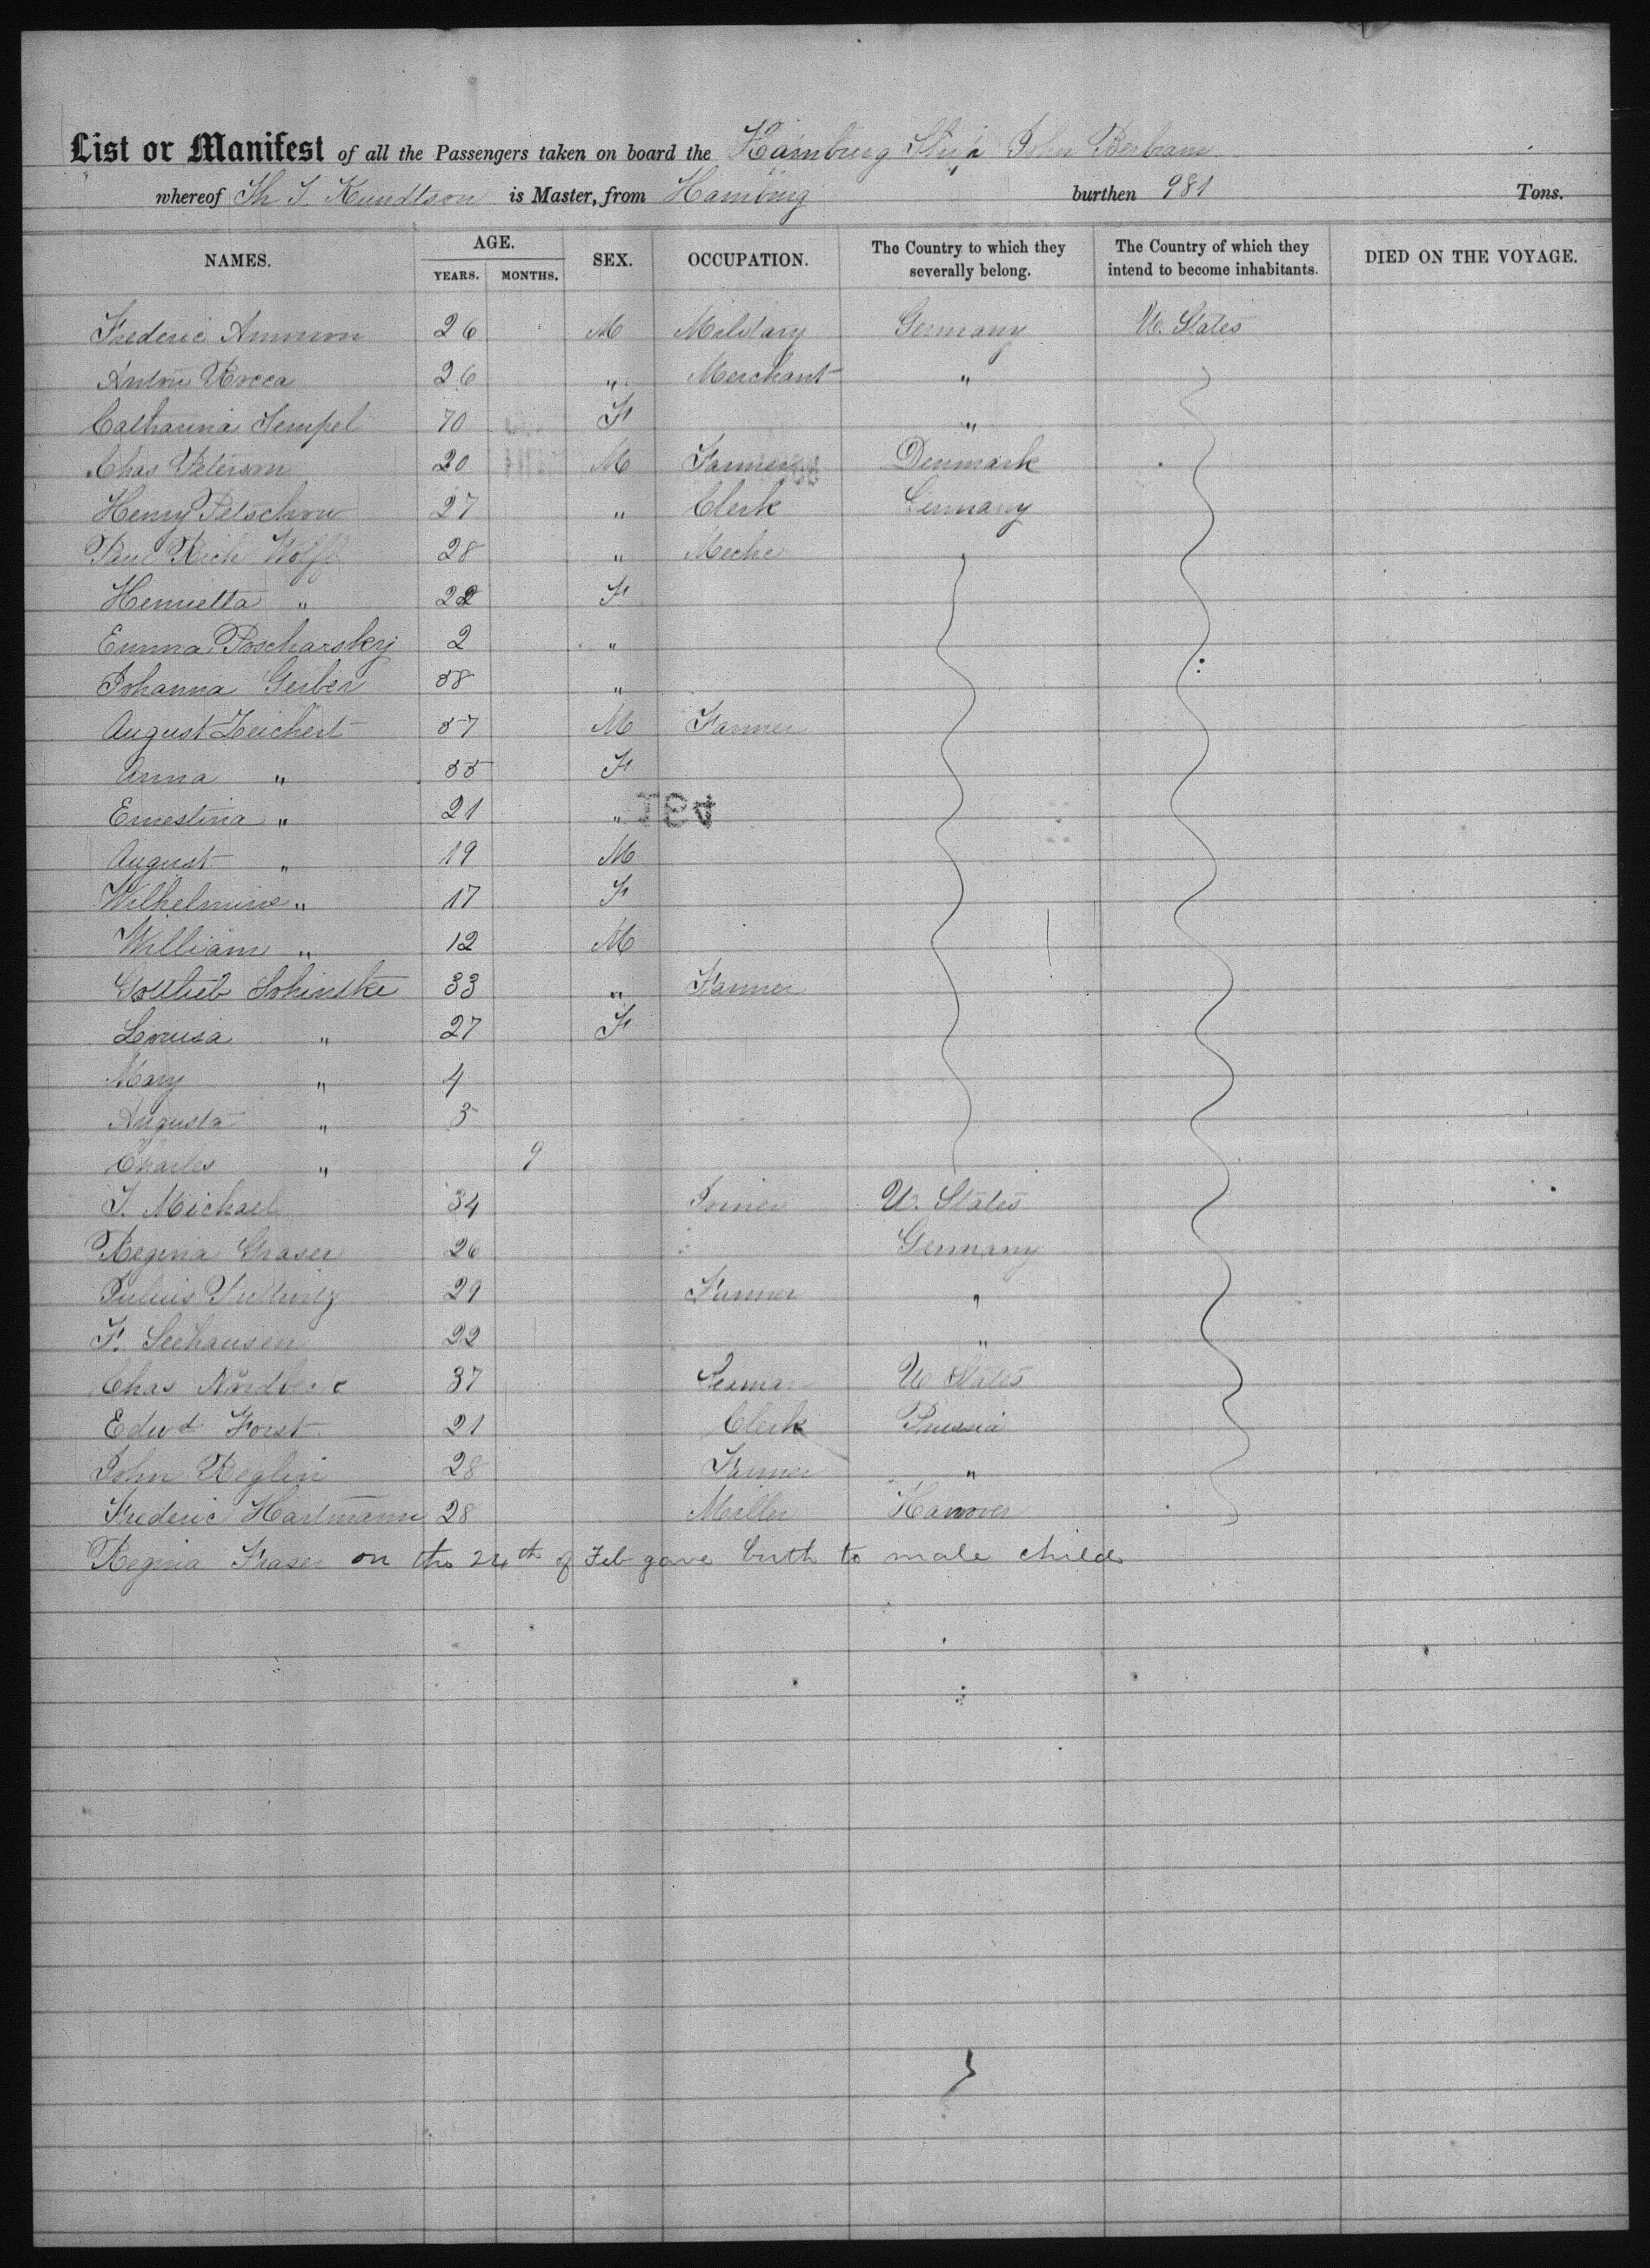 List or Manifest of all the Passengers taken on board the Hamburg Ship John Bertram
whereof Th J. Knudtson is Master, from Hamburg burthen 981 Tons.
NAMES. AGE. YEARS. MONTHS. SEX. OCCUPATION. The Country to which they severally belong. The Country of which they intend to become inhabitants. DIED ON THE VOYAGE.
Frederic Ammon 26 M Military Germany U. States
Anton Rocca 26 " Merchant "
Catharina Tempel 70 F "
Chas Peterson 20 M Farmer Denmark
Henry Petschow 27 " Clerk Germany
Paul Rich Wolff 28 " Mechc
Henrietta " 22 F
Emma Poscharsky 2 "
Johanna Gerber 58 "
August Zeichert 57 M Farmer
Anna " 55 F
Ernestina " 21 "
August " 19 M
Wilhelmine " 17 F
William " 12 M
Gottlieb Schinske 33 " Farmer
Louisa " 27 F
Mary " 4
Augusta " 3
Charles " 9
J. Michael 34 Joiner U. States
Regina Graser 26 Germany
Julius 29 Farmer "
F. Seehausen 22 "
Chas 37 Seaman U States
Edwd Forst 21 Clerk Prussia
John Reglin 28 Farmer "
Frederic Hartmann 28 Miller Hanover
Regina Fraser on the 24th of Feb gave birth to male child